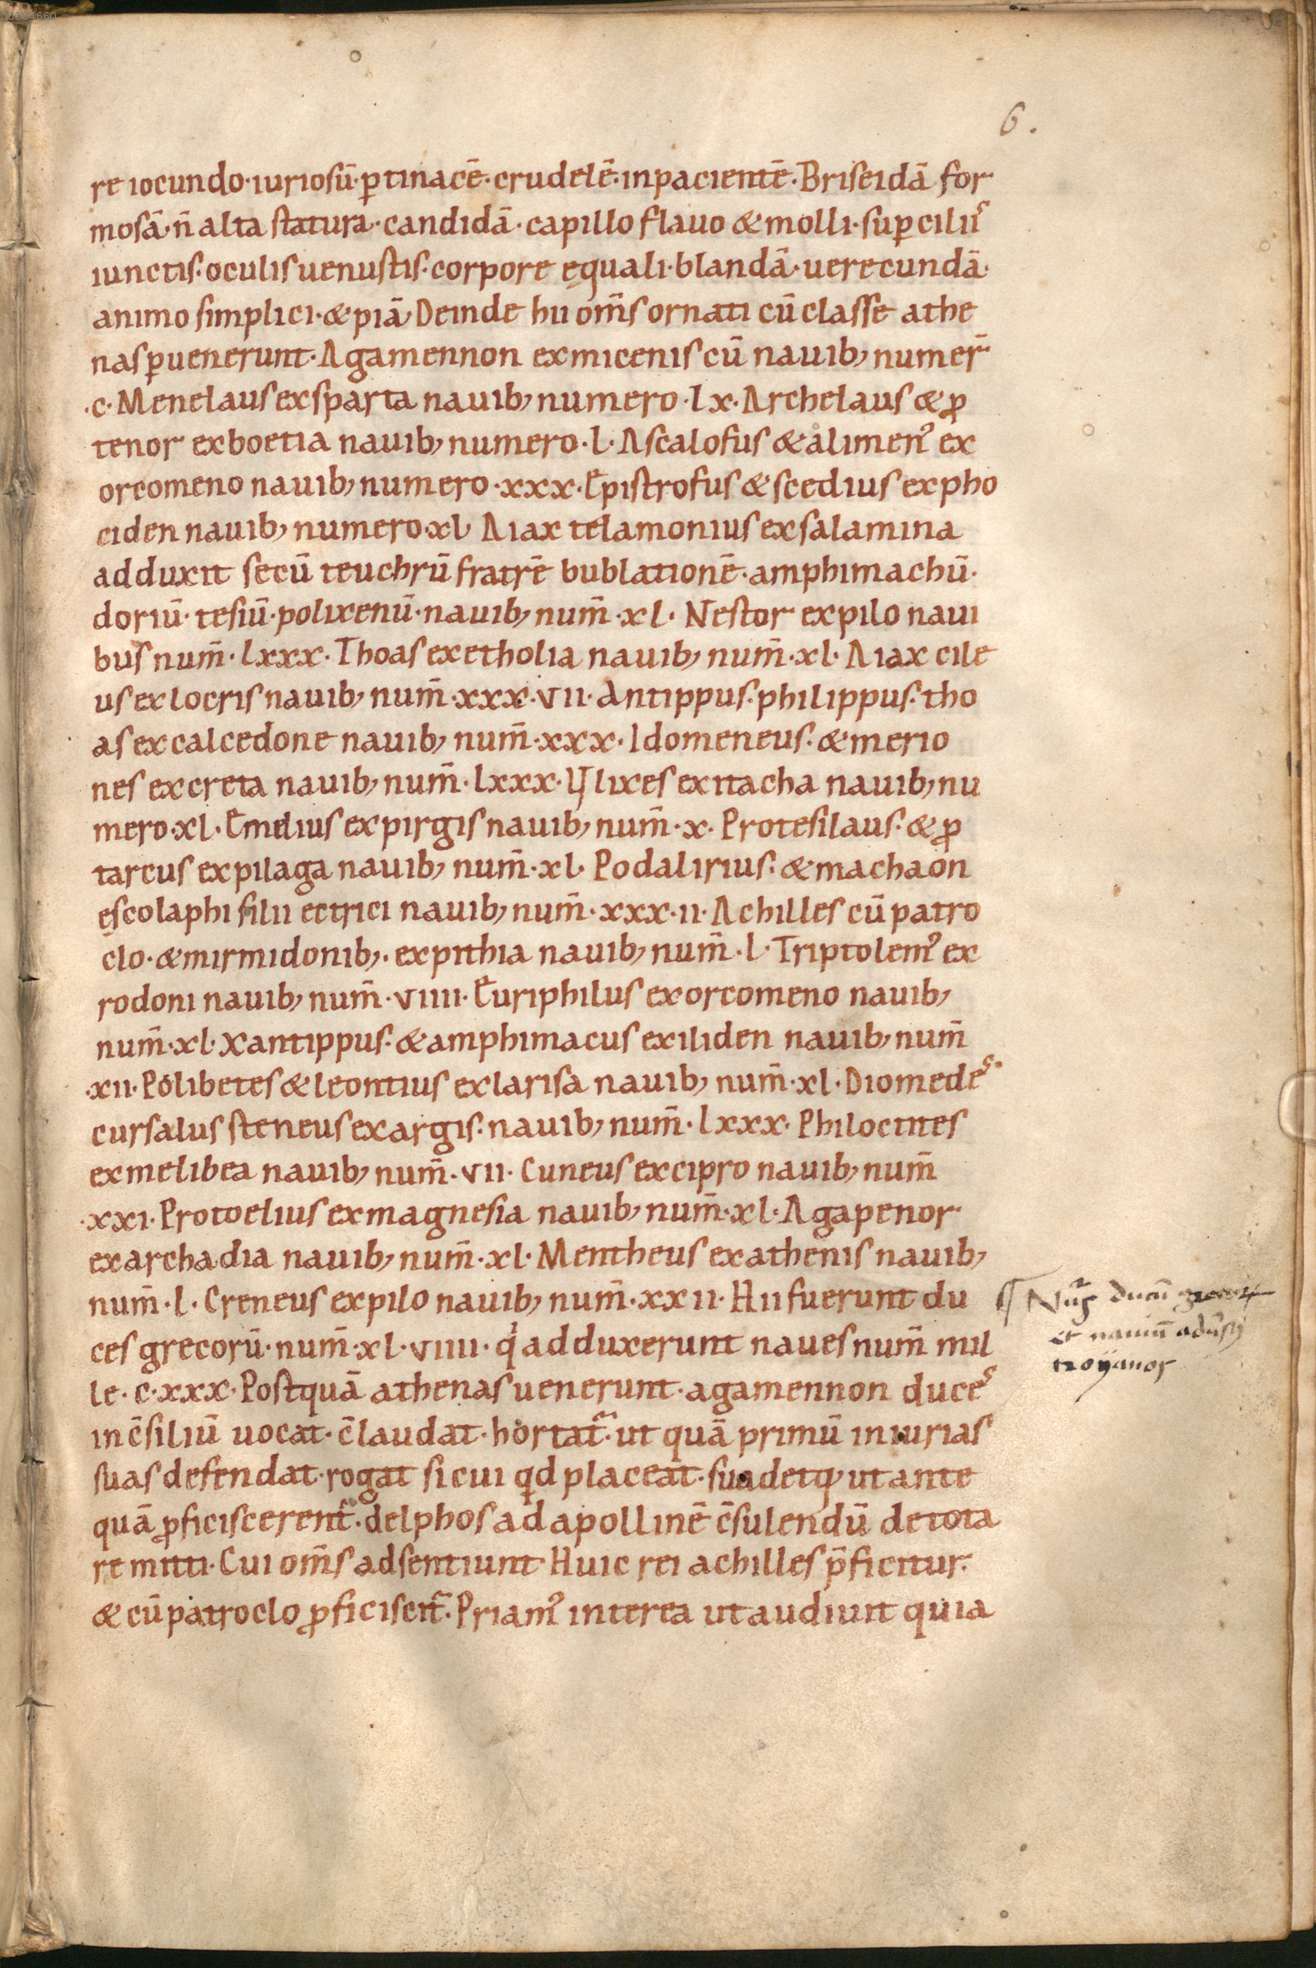 6.
re iocundo·iuriosū·ꝑtinacē·crudelē·inpacientē·Briseidā for
mosā·n̄ alta statura·candidā·capillo flauo & molli·suꝑciliis
iunctis·oculis uenustis·corpore ęquali·blandā·uerecundā·
animo simplici·& piā·Deinde hii om̄s ornati cū classe athe
nas ꝑuenerunt·Agamennon ex micenis cū nauib; numer̄
·c·Menelaus ex sparta nauib; numero·lx·Archelaus & ꝓ
tenor ex boetia nauib; numero·l·Ascalofus & alimen᾽ ex
orcomeno nauib; numero·xxx·Epistrofus & scedius ex pho
ciden nauib; numero·xl·Aiax telamonius ex salamina
adduxit secū teuchrū fratrē bublationē·amphimachū·
doriū·tesiū·polixenū·nauib; num̄·xl·Nestor ex pilo naui
bus num̄·lxxx·Thoas ex etholia nauib; num̄·xl·Aiax cile
us ex locris nauib; num̄·xxx·vii·Antippus·philippus·tho
as ex calcedone nauib; num̄·xxx·Idomeneus·& merio
nes ex creta nauib; num̄·lxxx·Ulixes ex itacha nauib; nu
mero·xl·Emelius ex pirgis nauib; num̄·x·Protesilaus·& ꝓ
tarcus ex pilaga nauib; num̄·xl·Podalirius·& machaon
escolaphi filii ectrici nauib; num̄·xxx·ii·Achilles cū patro
clo·& mirmidonib;·ex pithia nauib; num̄·l·Triptolem᾽ ex
rodoni nauib; num̄·viiii·Euriphilus ex orcomeno nauib;
num̄·xl·Xantippus·& amphimacus ex iliden nauib; num̄
·xii·Polibetes & leontius ex larisa nauib; num̄·xl·Diomedes·
cursalus steneus ex argis·nauib; num̄·lxxx·Philoctites
ex melibea nauib; num̄·vii·Cuneus ex cipro nauib; num̄
·xxi·Protoelius ex magnesia nauib; num̄·xl·Agapenor·
ex archadia nauib; num̄·xl·Mentheus ex athenis nauib;
num̄·l·Creneus ex pilo nauib; num̄·xxii·Hii fuerunt du
ces grecorū·num̄·xl·viiii·qͥ adduxerunt naues num̄ mil
le·c·xxx·Postquā athenas uenerunt·agamennon duces
in c̄siliū uocat·c̄laudat·hortat᷑·ut quā primū iniurias
suas defendat·rogat si cui qd placeat·suadetq; ut ante
quā ꝓficiscerent᷑·delphos ad apollinē c̄sulendū de tota
re mitti·Cui om̄s adsentiunt Huic rei achilles p̄ficitur·
& cū patroclo ꝓficiscit᷑·Priam᾽ interea ut audiuit quia
ducū grecoꝝ
et nauiū
troyanos